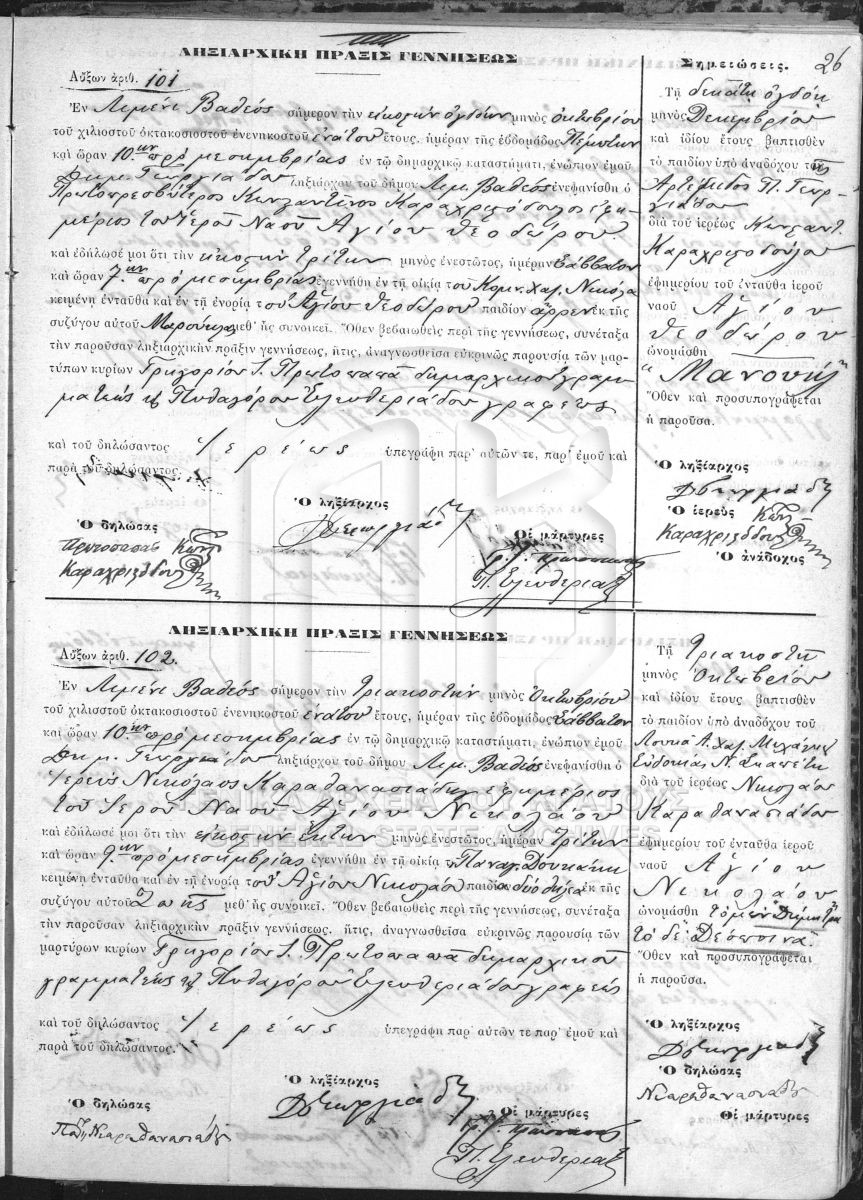 26
ΛΗΞΙΑΡΧΙΚΗ ΠΡΑΞΙΣ ΓΕΝΝΗΣΕΩΣ
Αὔξων ἀριθ. 101
Ἐν Λιμένι Βαθέος σήμερον τὴν εἰκοστὴν ὀγδόην μηνὸς Ὀκτωβρίου
τοῦ χιλιοστοῦ ὀκτακοσιοστοῦ ἐνενηκοστοῦ ἐνάτου ἔτους, ἡμέραν τῆς ἑβδομάδος Πέμπτην
καὶ ὥραν 10.ην πρὸ μεσημβρίας ἐν τῷ δημαρχικῷ καταστήματι, ἐνώπιον ἐμοῦ
Δημ. Γεωργιάδου ληξιάρχου τοῦ δήμου Λιμ. Βαθέος ἐνεφανίσθη ὁ
Πρωτοπρεσβύτερος Κωνσταντῖνος Καραχριστόδουλος ἐφη-
μέριος τοῦ Ἱεροῦ Ναοῦ Ἁγίου Θεοδώρου
καὶ ἐδήλωσέ μοι ὅτι τὴν εἰκοστὴν τρίτην μηνὸς ἐνεστῶτος, ἡμέραν Σάββατον
καὶ ὥραν 7.ην πρὸ μεσημβρίας ἐγεννήθη ἐν τῇ οἰκίᾳ τοῦ Χαζ. Νικόλα
κειμένῃ ἐνταῦθα καὶ ἐν τῇ ἐνορίᾳ τοῦ Ἁγίου Θεοδώρου παιδίον ἄρρεν ἐκ τῆς
συζύγου αὐτοῦ Μαρούκλας μεθ' ἧς συνοικεῖ. Ὅθεν βεβαιωθεὶς περὶ τῆς γεννήσεως, συνέταξα
τὴν παροῦσαν ληξιαρχικὴν πρᾶξιν γεννήσεως, ἥτις, ἀναγνωσθεῖσα εὐκρινῶς παρουσίᾳ τῶν μαρ-
τύπων κυρίων Γρηγορίου Ι. Πρωτοπαπᾶ δημαρχικοῦ γραμ-
ματέως καὶ Πυθαγόρου Ἐλευθεριάδου γραφέως
καὶ τοῦ δηλώσαντος Ἱερέως ὑπεγράφη παρ' αὐτῶν τε, παρ' ἐμοῦ καὶ
παρὰ τοῦ δηλώσαντος.
Ὁ ληξίαρχος
Δ Γεωργιάδης
Ὁ δηλώσας
Πρωτοπαπας Κων
Καραχριστόδουλος
Οἱ μάρτυρες
Γρ. Ι. Πρωτοπαπᾶς
Π. Ἐλευθεριάδης
Σημειώσεις.
Τῇ δεκάτῃ ὀγδόῃ
μηνὸς Δεκεμβρίου
καὶ ἰδίου ἔτους βαπτισθὲν
τὸ παιδίον ὑπὸ ἀναδόχου τῆς
Ἀρτέμιδος Π. Γεωρ-
γιάδου
διὰ τοῦ ἱερέως Κωνσταντ.
Καραχριστοδούλου
ἐφημερίου τοῦ ἐνταῦθα ἱεροῦ
ναοῦ Ἁγίου
Θεοδώρου
ὠνομάσθη
"Μανουήλ"
Ὅθεν καὶ προσυπογράφεται
ἡ παροῦσα.
Ὁ ληξίαρχος
Δ Γεωργιάδης
Ὁ ἱερεὺς Κων
Καραχριστόδουλος
Ὁ ἀνάδοχος
ΛΗΞΙΑΡΧΙΚΗ ΠΡΑΞΙΣ ΓΕΝΝΗΣΕΩΣ
Αὔξων ἀριθ. 102.
Ἐν Λιμένι Βαθέος σήμερον τὴν τριακοστὴν μηνὸς Ὀκτωβρίου
τοῦ χιλιοστοῦ ὀκτακοσιοστοῦ ἐνενηκοστοῦ ἐνάτου ἔτους, ἡμέραν τῆς ἑβδομάδος Σάββατον
καὶ ὥραν 10.ην πρὸ μεσημβρίας ἐν τῷ δημαρχικῷ καταστήματι, ἐνώπιον ἐμοῦ
Δημ. Γεωργιάδου ληξιάρχου τοῦ δήμου Λιμ. Βαθέος ἐνεφανίσθη ὁ
Ἱερεὺς Νικόλαος Καραθανασιάδης ἐφημέριος
τοῦ Ἱεροῦ Ναοῦ Ἁγίου Νικολάου
καὶ ἐδήλωσέ μοι ὅτι τὴν εἰκοστὴν ἕκτην μηνὸς ἐνεστῶτος, ἡμέραν Τρίτην
καὶ ὥραν 9.ην πρὸ μεσημβρίας ἐγεννήθη ἐν τῇ οἰκίᾳ τοῦ Παναγ. Δουκάκη
κειμένῃ ἐνταῦθα καὶ ἐν τῇ ἐνορίᾳ τοῦ Ἁγίου Νικολάου παιδία δύο θήλεα ἐκ τῆς
συζύγου αὐτοῦ Ζωῆς μεθ' ἧς συνοικεῖ. Ὅθεν βεβαιωθεὶς περὶ τῆς γεννήσεως, συνέταξα
τὴν παροῦσαν ληξιαρχικὴν πρᾶξιν γεννήσεως. ἥτις, ἀναγνωσθεῖσα εὐκρινῶς παρουσίᾳ τῶν
μαρτύρων κυρίων Γρηγορίου Ι. Πρωτοπαπᾶ δημαρχικοῦ
γραμματέως καὶ Πυθαγόρου Ἐλευθεριάδου γραφέως
καὶ τοῦ δηλώσαντος Ἱερέως ὑπεγράφη παρ' αὐτῶν τε παρ' ἐμοῦ καὶ
παρὰ τοῦ δηλώσαντος.
Ὁ ληξίαρχος
Δ Γεωργιάδης
Ὁ δηλώσας
Παπᾶ Ν Καραθανασιάδης
Οἱ μάρτυρες
Γρ. Ι. Πρωτοπαπᾶς
Π. Ἐλευθεριάδης
Τῇ Τριακοστῇ
μηνὸς Ὀκτωβρίου
καὶ ἰδίου ἔτους βαπτισθὲν
τὸ παιδίον ὑπὸ ἀναδόχου τοῦ
Λουκᾶ Α. Χαζ. Μιχάλη καὶ
Εὐδοκίας Ν.
διὰ τοῦ ἱερέως Νικολάου
Καραθανασιάδου
ἐφημερίου τοῦ ἐνταῦθα ἱεροῦ
ναοῦ Ἁγίου
Νικολάου
ὠνομάσθη τὸ μὲν Δήμητρα
τὸ δὲ Δέσποινα.
Ὅθεν καὶ προσυπογράφεται
ἡ παροῦσα.
Ὁ ληξίαρχος
Δ Γεωργιάδης
Ὁ δηλώσας
Ν Καραθανασιάδης
Οἱ μάρτυρες
ΓΕΝΙΚΑ ΑΡΧΕΙΑ ΤΟΥ ΚΡΑΤΟΥΣ
GENERAL STATE ARCHIVES